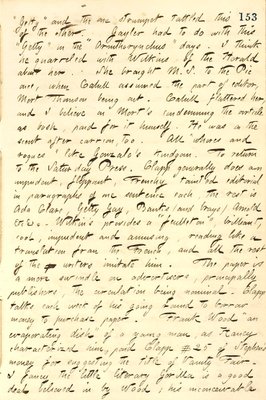 153
"Getty" and the one strumpet tattled this
of the other. Gayler had to do with this
"Getty" in the "Ornithoryncus" days. I think
he quarreled with Wilkins of the Herald
about her. She brought M.S. to the Pic
once, when Cahill assumed the part of editor,
Mort Thomson being out. Cahill flattered her
and I believe on Mort's condemning the article
as bosh, paid for it himself. He was a the
scent after carrion, too. All whores and
rogues I like Gonzalo's Kingdom. To return
to the Saturday Press. Clapp generally does an
impudent, flippant, Frenchy tainted editorial
in paragraphs of one sentence each the rest of
Ada Clare, Getty Gay, Banks and Gray, Arnold
&c. Watkin provides a "feuilleton" brilliant,
cool, impudent and amusing, reading like a
translation from the French, and all the rest
of the writers imitate him. The paper is
a mere swindle on advertisers, principally
publishers, the circulation being nominal. Clapp
talks each week of his going round to borrow
money to purchase paper. Frank Wood "an
evaporating dish" of a young man as Haney
characterized him, paid Clapp #25 of Stephens
money for suggesting the title of Vanity Fair.
I fancy the little literary gorilla is a good
deal believed in by Wood; his inconceivable